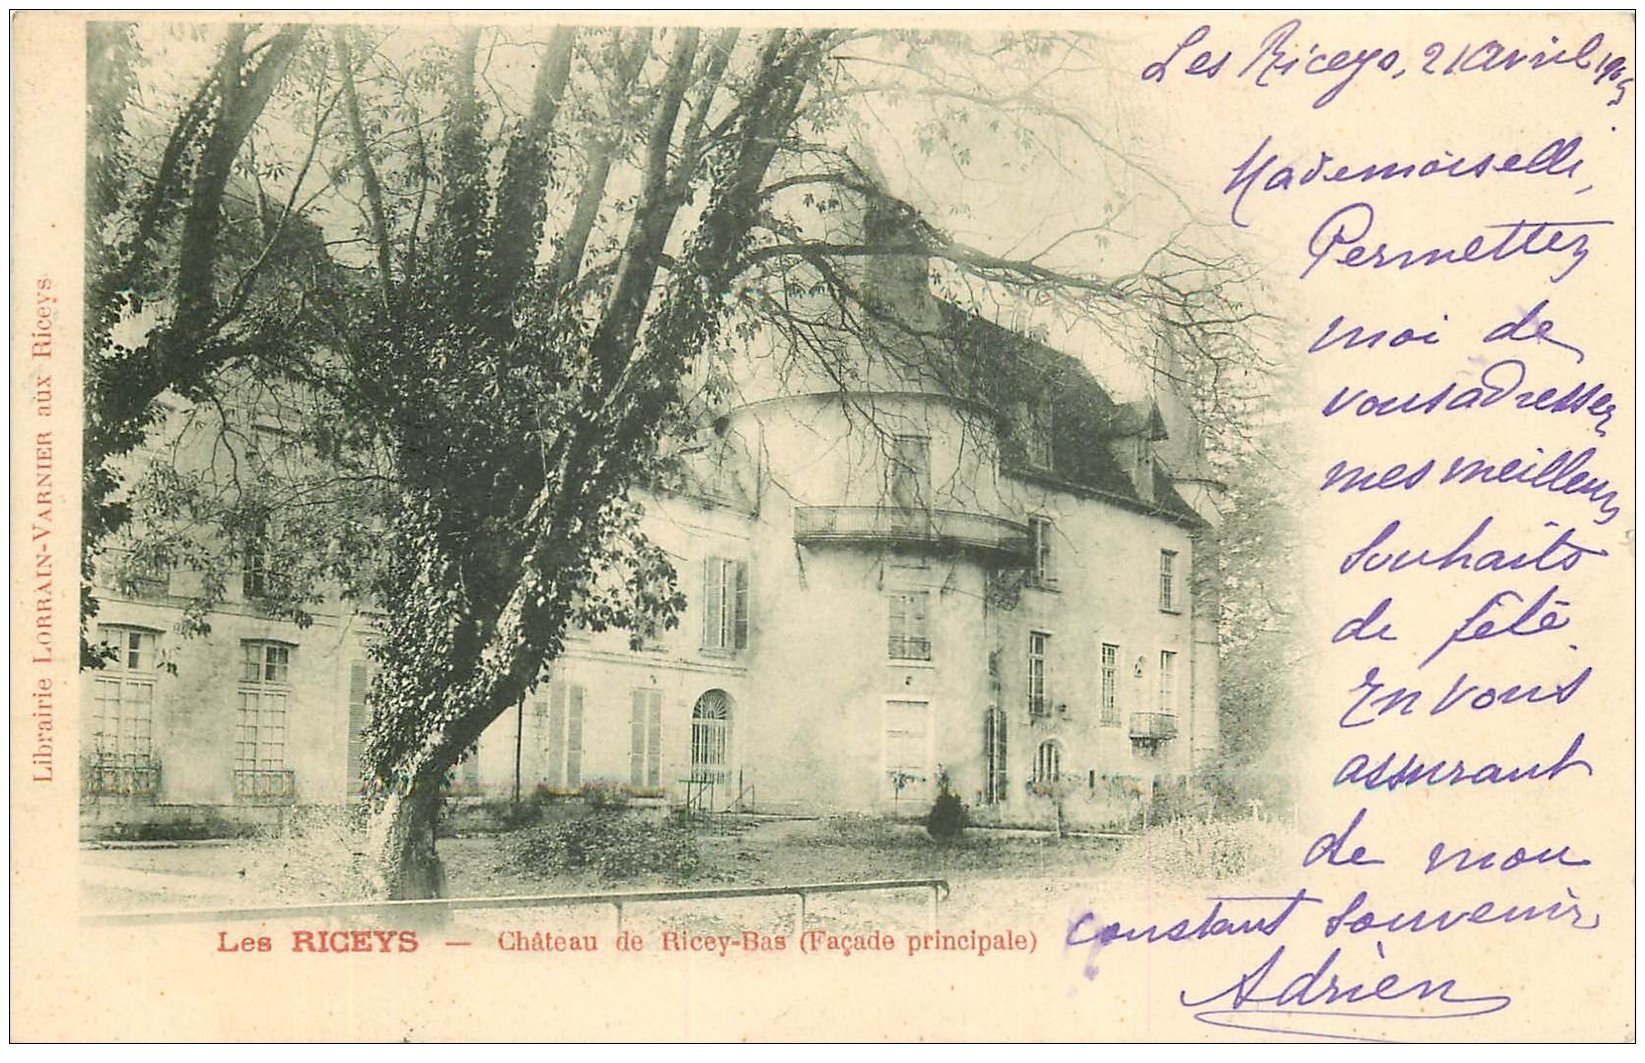 Les Riceys, 21 Avril 1903
Mademoiselle,
Permettez
moi de
vous adresser
mes meilleurs
souhaits
de fête.
En vous
assurant
de mon
constant souvenir
Adrien
Librairie LORRAIN-VARNIER aux Riceys
Les RICEYS — Château de Ricey-Bas (Façade principale)